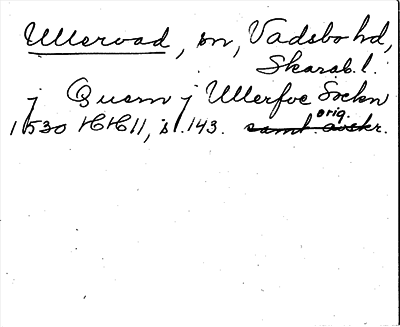 Ullervad, sn, Vadsbo hd,
Skarab. l.
j Quern j Ullerfoe Sockn
orig.
1530 HH 11, s. 143. samt. avskr.